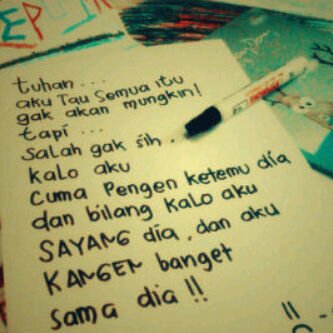 tuhan ...
aku Tau Semua itu
gak akan mungkin!
tapi ...
Salah gak sih .
kalo aku
Cuma Pengen ketemu dia
dan bilang KaLo aKu
SAYANG dia, dan aku
KANGEN banget
Sama dia!!